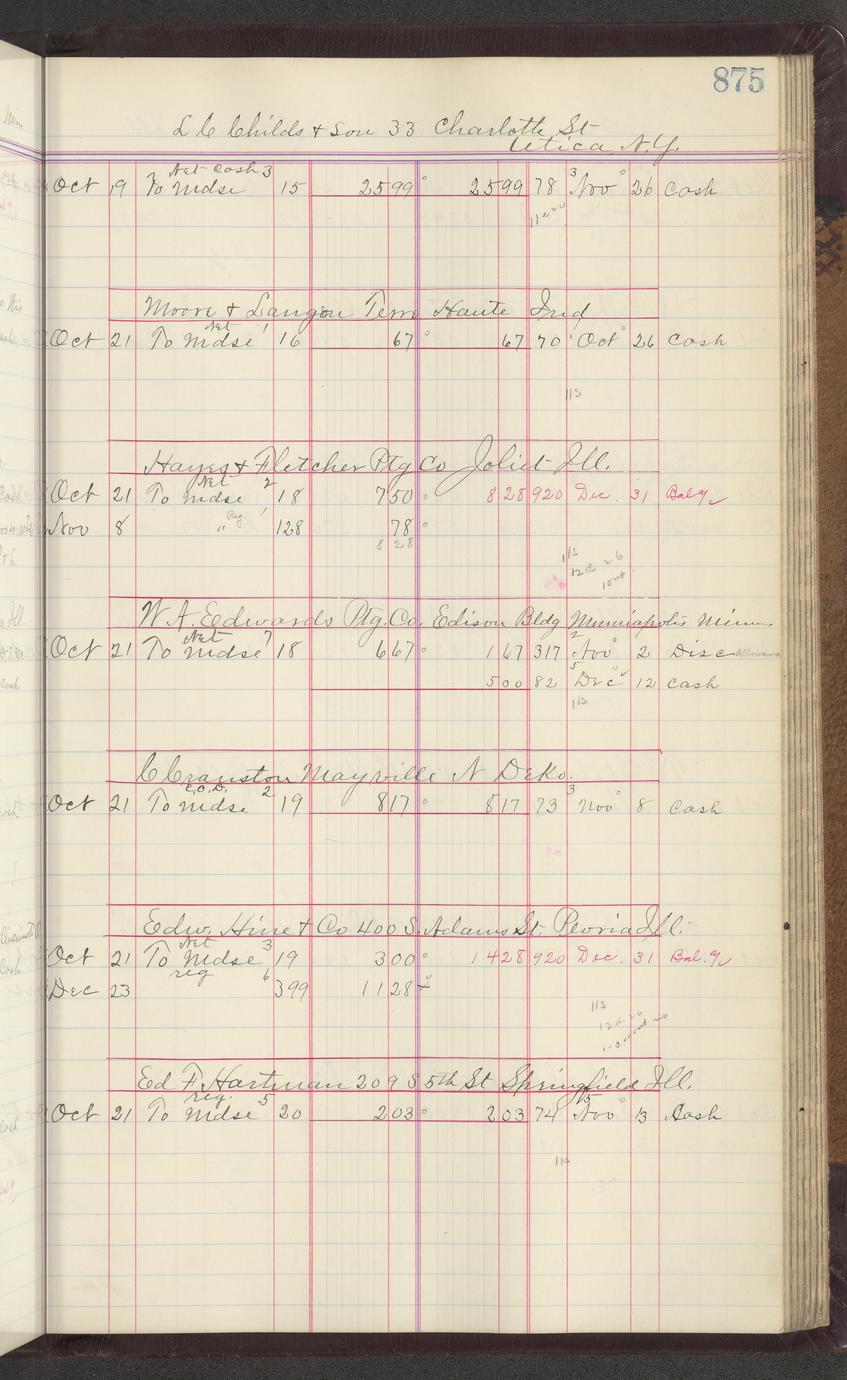 875
L C Childs & Son 33 Charlotte St
Utica N.Y.
Net Cash 3
Oct 19 To Mdse 15 2599 2599 78 3 Nov 26 Cash
Moore & Langon Terre Haute Ind
Net 1
Oct 21 To Mdse 16 67 67 70 1 Oct 26 Cash
11s
Hayes & Fletcher Ptg Co Joliet Ill.
Net 2
Oct 21 To Mdse 18 750 828 920 Dec. 31 Bal
Reg 1
Nov 8 " 128 78
828
11s
12 26
W. A. Edwards Ptg. Co. Edison Bldg Minniapolis Minn.
Net 7
Oct 21 To Mdse 18 667 167 317 2 Nov 2 Disc allowance
500 82 5 Dec 12 Cash
11s
C Cranston Mayville N Deko.
C.O.D. 2
Oct 21 To Mdse 19 817 817 73 3 Nov 8 Cash
Edw. Hine & Co 400 S. Adams St. Peoria Ill.
Net 3
Oct 21 To Mdse 19 300 1428 920 Dec. 31 Bal.
reg 6
Dec 23 399 1128
11s
Ed F. Hartman 209 S 5th St Springfield Ill.
reg. 5
Oct 21 To Mdse 20 203 203 74 15 Nov 13 Cash
11s